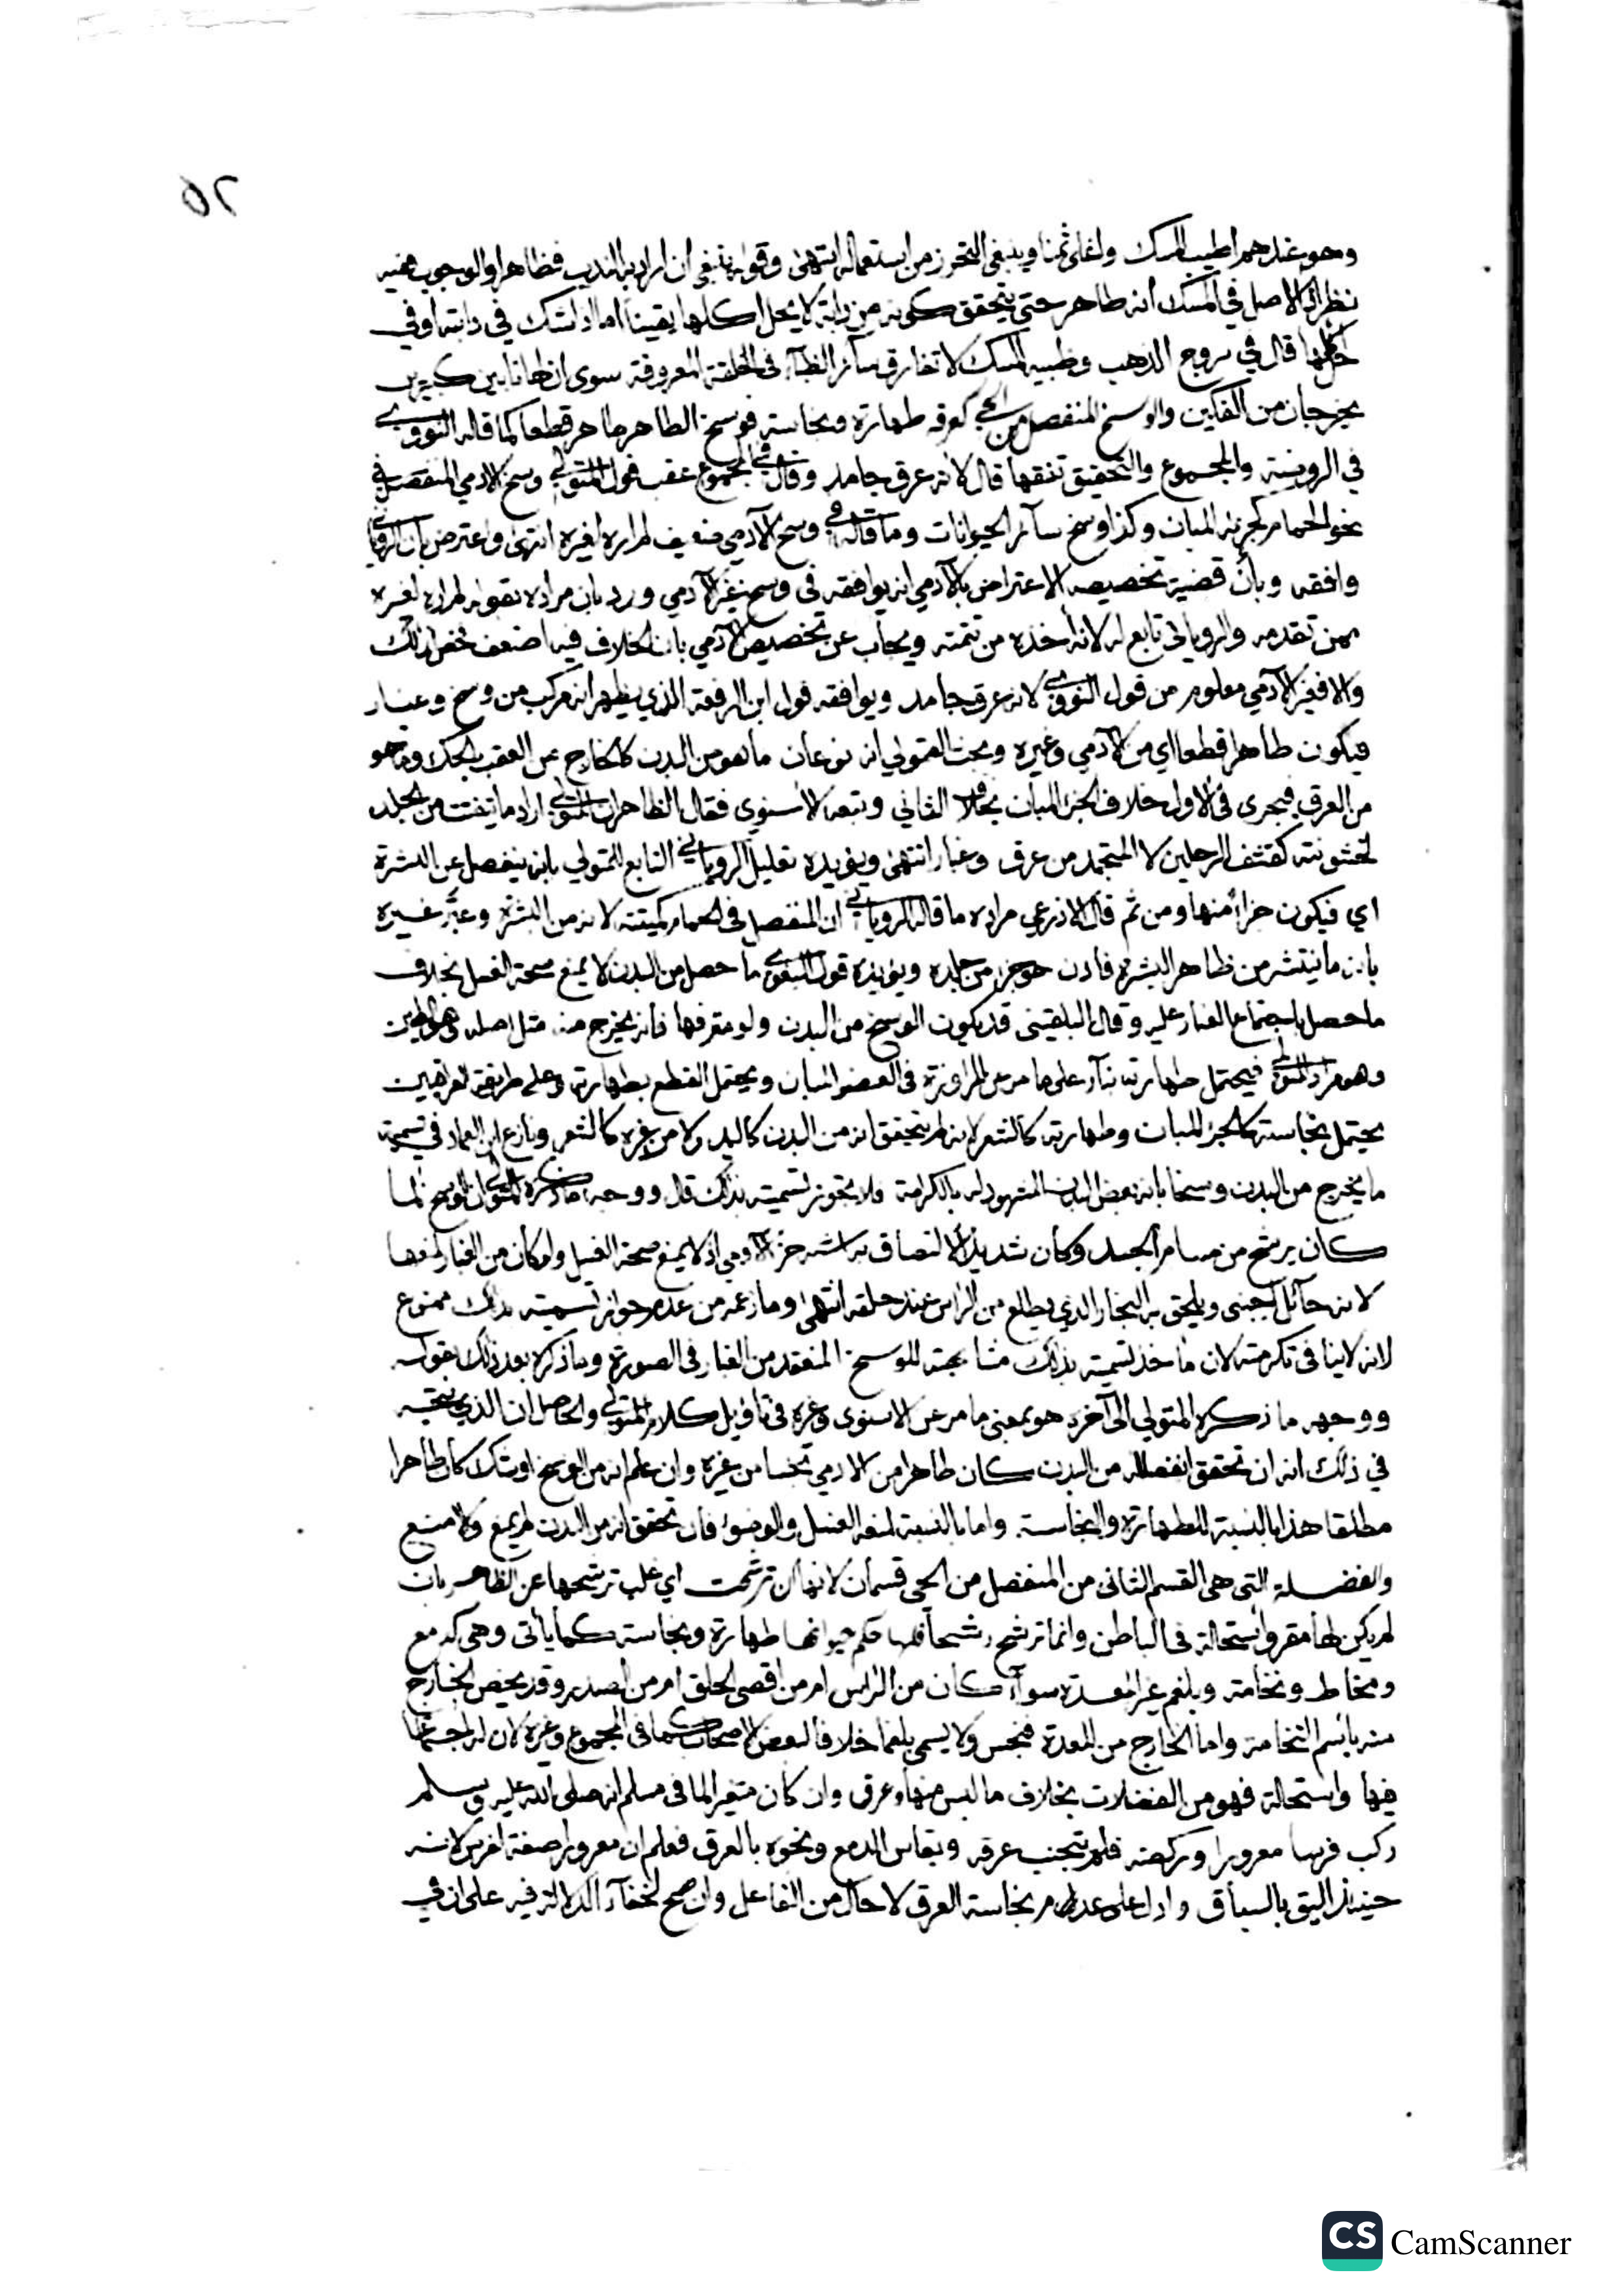 ٥٢
وهو عندهم اطيب المسك واغلى ثمنا وينبغي التحرز من استعماله انتهى وقوله ينبغي ان اراد به الندب فظاهر او الوجوب ففيه
نظر اذ الاصل في المسك انه طاهر حتى يتحقق كونه من دابة لا يحل اكلها يقينا اما اذا شك في دابته او في
اكلها قال في مروج الذهب وظبية المسك لا تفارق سائر الظباء في الخلقة المعروفة سوى ان لها نابين كبيرين
يخرجان من الفكين والوسخ المنفصل من الحي كعرقه طهارة ونجاسة فوسخ الطاهر طاهر قطعا كما قاله النووي
في الروضة والمجموع والتحقيق تفقها قال لانه عرق جامد وقال في المجموع عقب قول المتولي وسخ الادمي المنفصل في
نحو الحمام كجزئه المبان وكذا وسخ سائر الحيوانات وما قاله في وسخ الآدمي ضعيف لم اره لغيره انتهى واعترض بان الروياني
وافقه وبأن قضية تخصيصه الاعتراض بالآدمي انه يوافقه في وسخ غير الآدمي ورد بان مراده بقوله لم اره لغيره
ممن تقدمه والروياني تابع له لانه أخذه من تتمته ويجاب عن تخصيص الآدمي بان الخلاف فيه اضعف فخص لذلك
والا فغير الآدمي معلوم من قول النووي لانه عرق جامد ويوافقه قول ابن الرفعة الذي يظهر انه مركب من وسخ وغبار
فيكون طاهرا قطعا اي من الآدمي وغيره وبحث القمولي انه نوعان ما هو من البدن كالخارج من العقب بالحك وما هو
من العرق فيجري في الاول خلاف الجزء المبان بخلاف الثاني وتبعه الاسنوي فقال الظاهر ان المتولي اراد ما يتفتت من الجلد
لخشونته كقشف الرجلين لا المتجمد من عرق وغبار انتهى ويؤيده تعليل الروياني التابع للمتولي بانه ينفصل عن البشرة
اي فيكون جزأ منها ومن ثم قال الاذرعي مراده ما قاله الروياني ان المنفصل في الحمام كميتته لانه من البشرة وعبر غيره
بان ما ينتشر من ظاهر البشرة فاذن هو جزء من جلده ويؤيده قول البغوي ما حصل من البدن لا يمنع صحة الغسل بخلاف
ما حصل باجتماع الغبار عليه وقال البلقيني قد يكون الوسخ من البدن ولو مترفها فانه يخرج منه مثل اصله وهو الطين
وهو مراد المتولي فيحتمل طهارته بناء على ما مر عن المراوزة في العضو المبان ويحتمل القطع بطهارته وعلى طريقة العراقيين
يحتمل نجاسته كالجزء المبان وطهارته كالشعر لانه لم يتحقق انه من البدن كاليد ولا من غيره كالشعر ونازع ابن العماد في تسمية
ما يخرج من البدن وسخا بانه بعض البدن المشهود له بالكرامة فلا يجوز تسميته بذلك قال ووجه ما ذكره المتولي ان الوسخ لما
كان يرشح من مسام الجسد وكان شديد الالتصاق به اشبه جزء الآدمي اذ لا يمنع صحة الغسل ولو كان من الغبار لمنعها
لانه حائل اجنبي ويلحق به البخار الذي يطلع من الراس عند حلقه انتهى وما زعمه من عدم جواز تسميته بذلك ممنوع
لانه لا ينافي تكرمته لان مأخذ تسميته بذلك مشابهته للوسخ المنعقد من الغبار في الصورة وما ذكره بعد ذلك بقوله
ووجه ما ذكره المتولي الى آخره هو بمعنى ما مر عن الاسنوي وغيره في تأويل كلام المتولي والحاصل ان الذي يتجه
في ذلك انه ان تحقق انفصاله من البدن كان طاهرا من الادمي نجسا من غيره وان علم انه من الوسخ او شك كان طاهرا
مطلقا هذا بالنسبة للطهارة والنجاسة واما بالنسبة لمنعه الغسل والوضوء فان تحقق انه من البدن لم يمنع والا منع
والفضلة التي هي القسم الثاني من المنفصل من الحي قسمان لانها ان ترشحت اي غلب ترشحها عن الظاهر بان
لم يكن لها مقر واستحالة في الباطن وانما ترشح رشحا فلها حكم حيوانها طهارة ونجاسة كما يأتي وهي كدمع
ومخاط ونخامة وبلغم غير المعدة سواء كان من الراس ام من اقصى الحلق ام من الصدر وقد يخص الخارج
منه باسم النخامة واما الخارج من المعدة فنجس ولا يسمى بلغما خلافا لبعض الاصحاب كما في المجموع وغيره لان له اجتماعا
فيها واستحالة فهو من الفضلات بخلاف ما ليس منها وعرق وان كان متغيرا لما في مسلم انه صلى الله عليه وسلم
ركب فرسا معرورا وركضه فلم يتجنب عرقه ويقاس الدمع ونحوه بالعرق فعلم ان معرورا صفة لفرس لانه
حينئذ اليق بالسياق وادل على عدم نجاسة العرق لا حال من الفاعل وان صح لخفاء الدلالة فيه على ان في
CS CamScanner